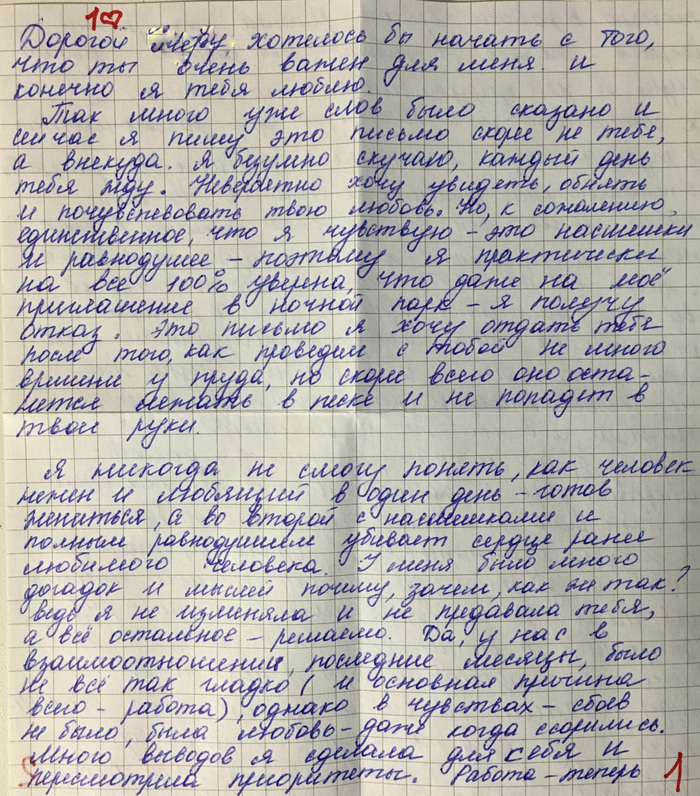 1♡
Дорогой хотелось бы начать с того,
что ты очень важен для меня. и
конечно я тебя люблю.
Так много уже слов было сказано и
сейчас я пишу это письмо скорее не тебе,
а вникуда. Я безумно скучаю, каждый день
тебя жду. Невероятно хочу увидеть, обнять
и почувствовать твою любовь. Но, к сожалению,
единственное, что я чувствую - это насмешки
и равнодушее - поэтому я практически
на все 100% уверена, что даже на моё
приглашение в ночной парк - я получу
отказ. Это письмо я хочу отдать тебе
после того, как проведем с тобой не много
времени у пруда, но скорее всего оно оста-
нется лежать в песке и не попадет в
твои руки.
Я никогда не смогу понять, как человек
нежен и любящий в один день - готов
жениться, а во второй с насмешками и
полным равнодушием убивает сердце ранее
любимого человека. У меня было много
догадок и мыслей почему, зачем, как же так?
Ведь я не изменяла и не предавала тебя,
а всё остальное - решаемо. Да, у нас в
взаимоотношении, последние месяцы, было
не всё так гладко (и основная причина
всего - работа), однако в чувствах - сбоев
не было, была любовь - даже когда ссорились.
Много выводов я сделала для себя и
пересмотрела приоритеты. Работа - теперь
1